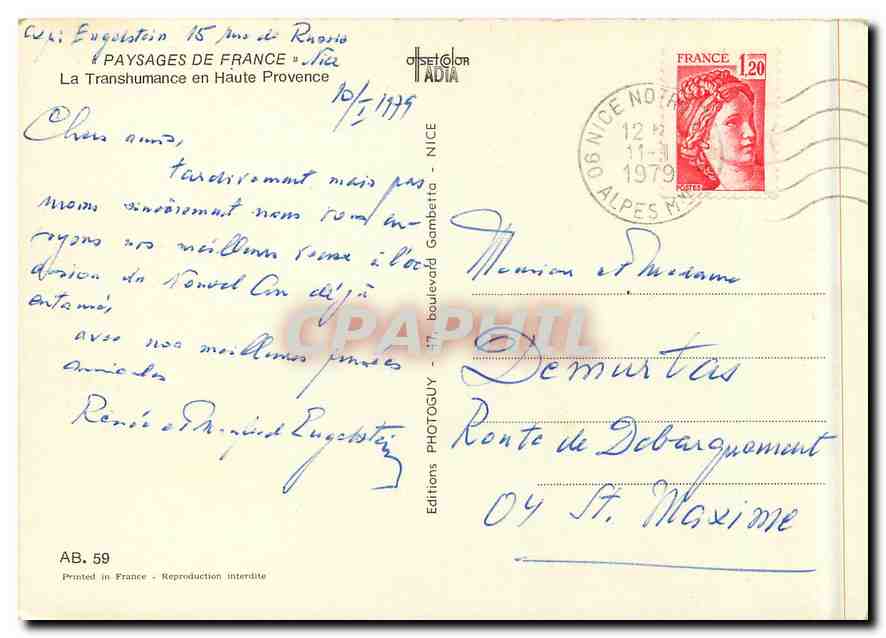 Exp: Engelstein 15 rue de Russie
Nice
" PAYSAGES DE FRANCE "
La Transhumance en Haute Provence
10/I 1979
Chers amis,
tardivement mais pas
moins sincèrement nous vous en-
voyons nos meilleurs voeux à l'oc-
casion du Nouvel An déjà
entamé,
avec nos meilleures pensées
amicales
Renée et Manfred Engelstein
AB. 59
Printed in France - Reproduction interdite
OFFSETCOLOR
ADIA
Editions PHOTOGUY - 47, boulevard Gambetta - NICE
FRANCE 1,20
POSTES
06 NICE NOTRE
12 H
11-1
1979
ALPES Mmes
Monsieur et Madame
Demurtas
Route de Debarquement
04 St. Maxime
CPAPHIL